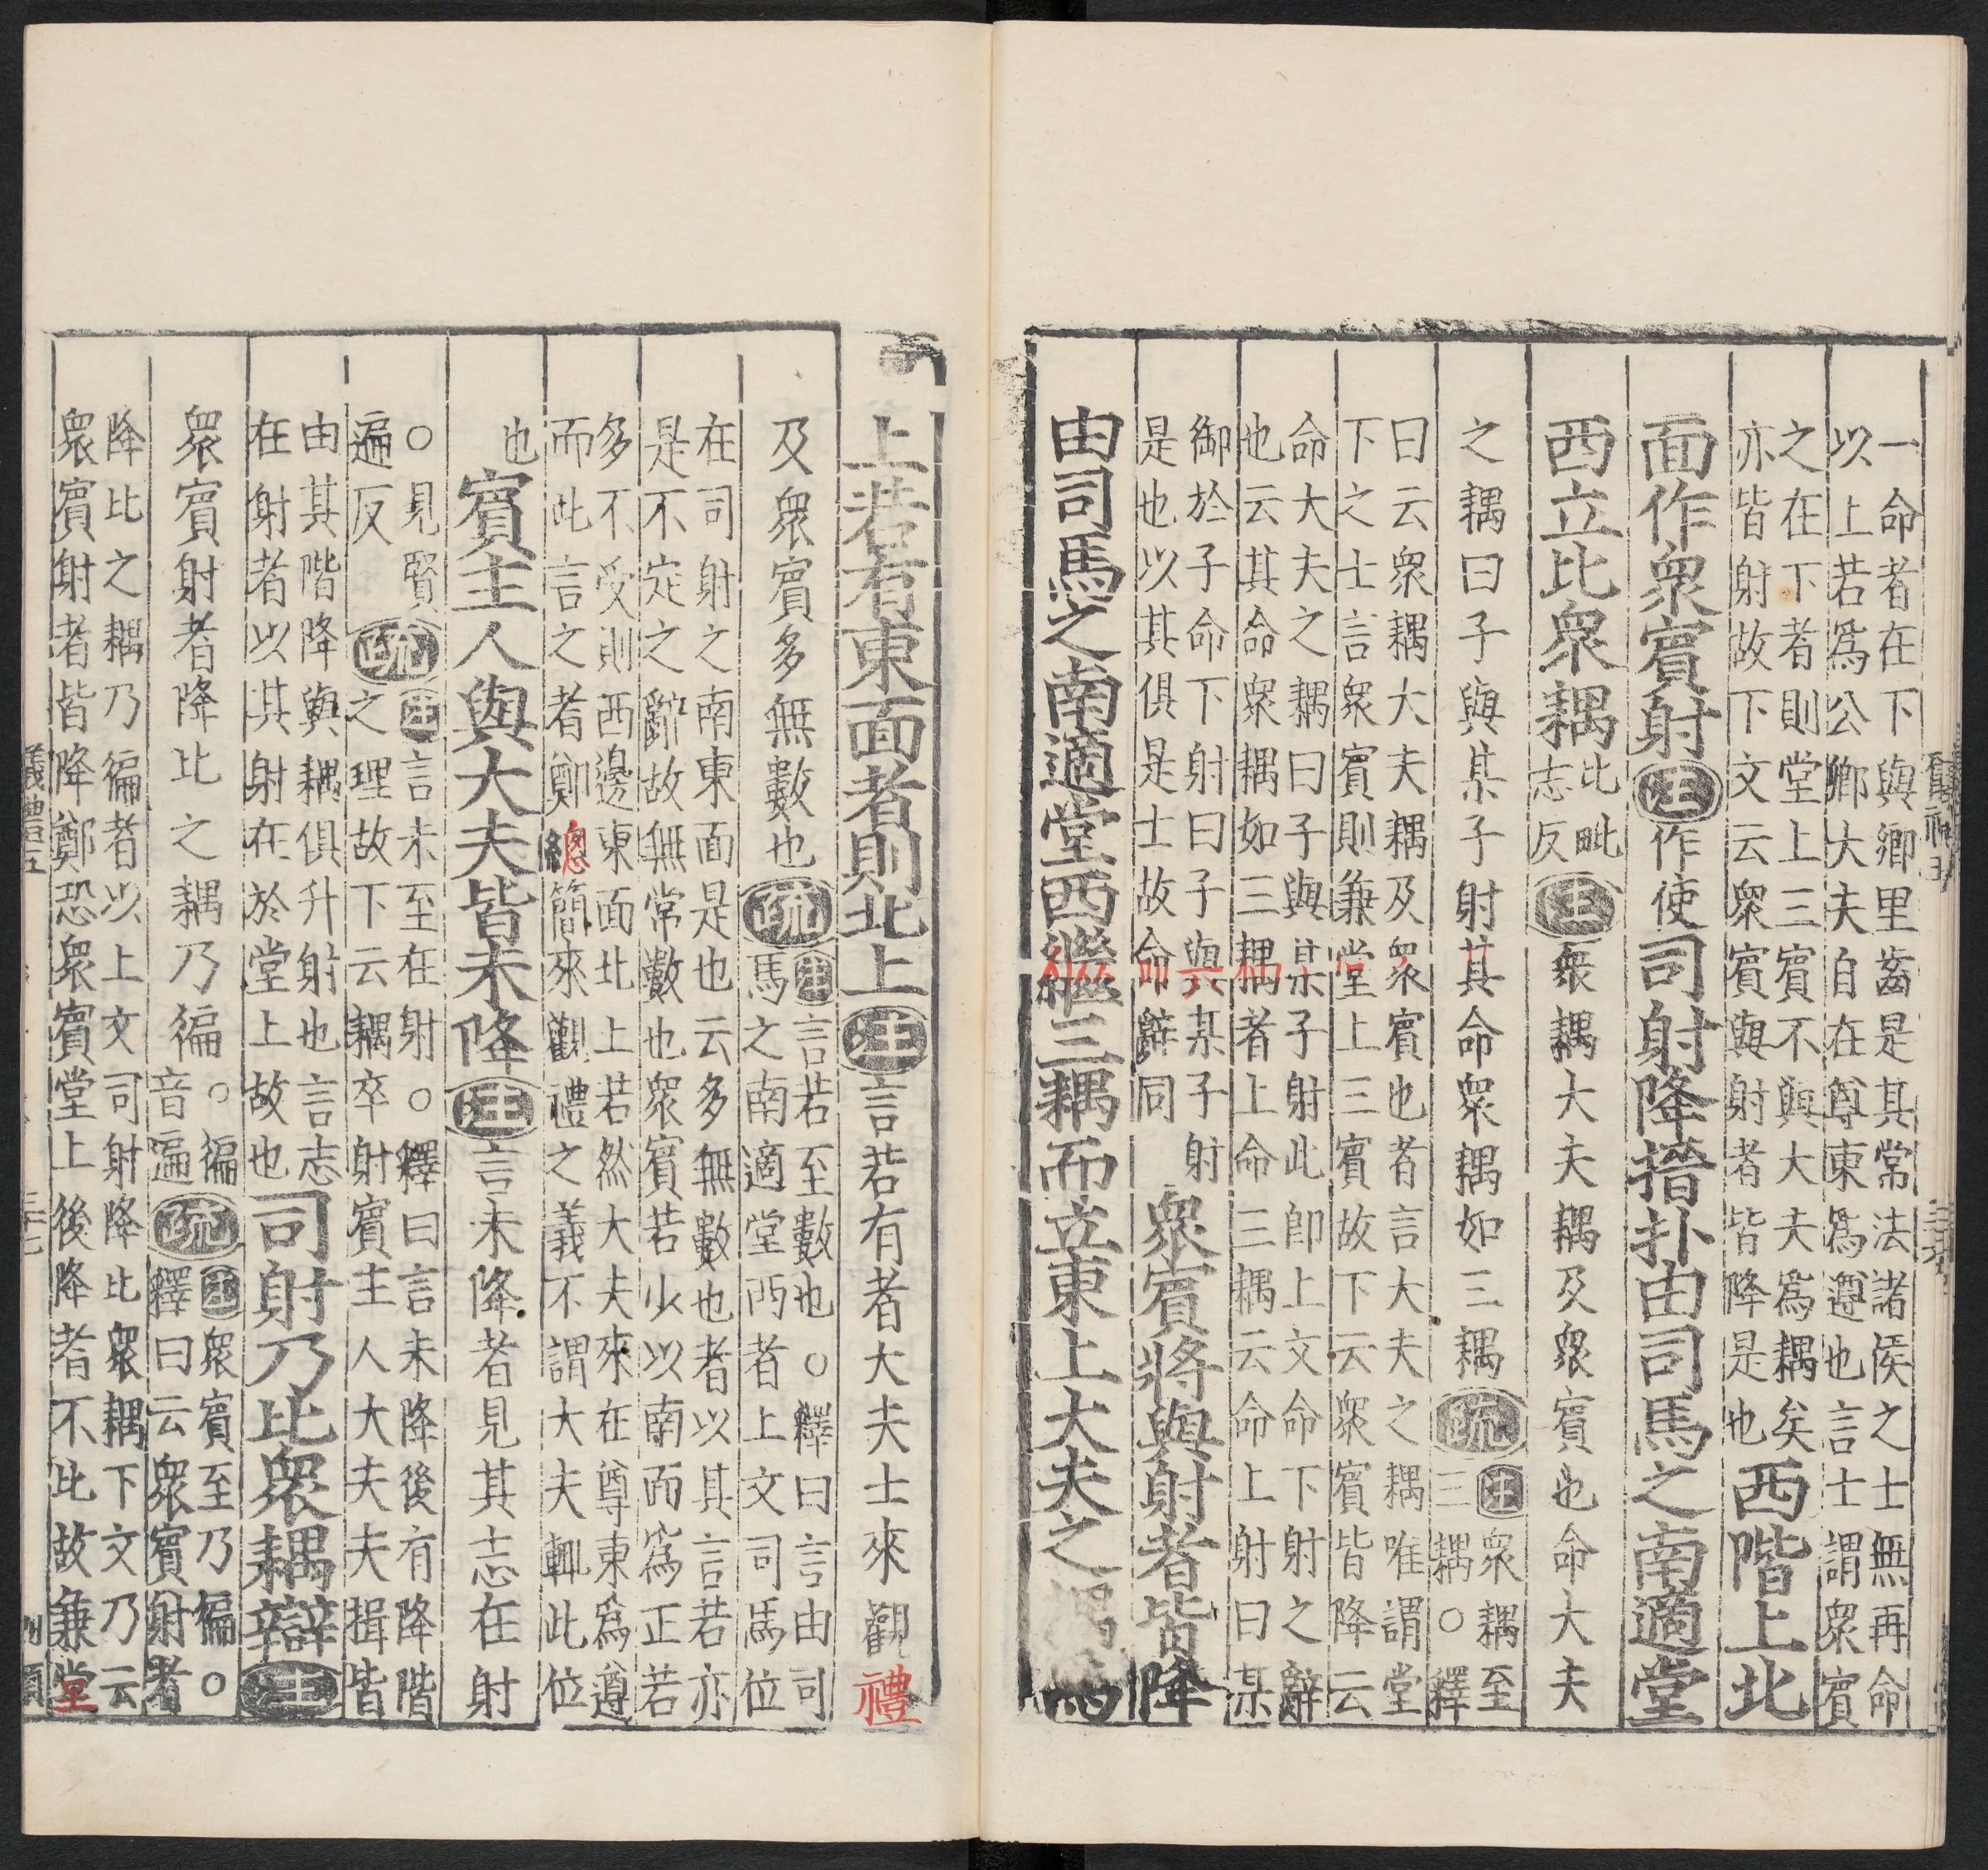 一命者在下與鄉里齒是其常法諸侯之士無再命
以上若爲公卿大夫自在尊東爲遵也言士謂衆賓
之在下者則堂上三賓不與大夫爲耦矣
亦皆射故下文云衆賓與射者皆降是也
西階上北
面作衆賓射
注作使
司射降搢扑由司馬之南適堂
西立比衆耦
比毗
志反
注衆耦大夫耦及衆賓也命大夫
之耦曰子與某子射其命衆耦如三耦
疏
注衆耦至
三耦○釋
曰云衆耦大夫耦及衆賓也者言大夫之耦唯謂堂
下之士言衆賓則兼堂上三賓故下云衆賓皆降云
命大夫之耦曰子與某子射此即上文命下射之辭
也云其命衆耦如三耦者上命三耦云命上射曰某
御於子命下射曰子與某子射
是也以其俱是士故命辭同
衆賓將與射者皆降
由司馬之南適堂西繼三耦而立東上大夫之
上若有東面者則北上
注言若有者大夫士來觀禮
及衆賓多無數也
疏
注言若至數也○釋曰言由司
馬之南適堂西者上文司馬位
在司射之南東面是也云多無數也者以其言若亦
是不定之辭故無常數也衆賓若少以南面爲正若
多不受則西邊東面北上若然大夫來在尊東爲遵
而此言之者鄭總簡來觀禮之義不謂大夫輒此位
也
賓主人與大夫皆未降
注言未降者見其志在射
○見賢
遍反
疏
注言未至在射○釋曰言未降後有降階
之理故下云耦卒射賓主人大夫揖皆
由其階降與耦俱升射也言志
在射者以其射在於堂上故也
司射乃比衆耦辯
注
衆賓射者降比之耦乃徧○
徧
音遍
疏
注衆賓至乃徧○
釋曰云衆賓射者
降比之耦乃徧者以上文司射降比衆耦下文乃云
衆賓射者皆降鄭恐衆賓堂上後降者不比故兼堂